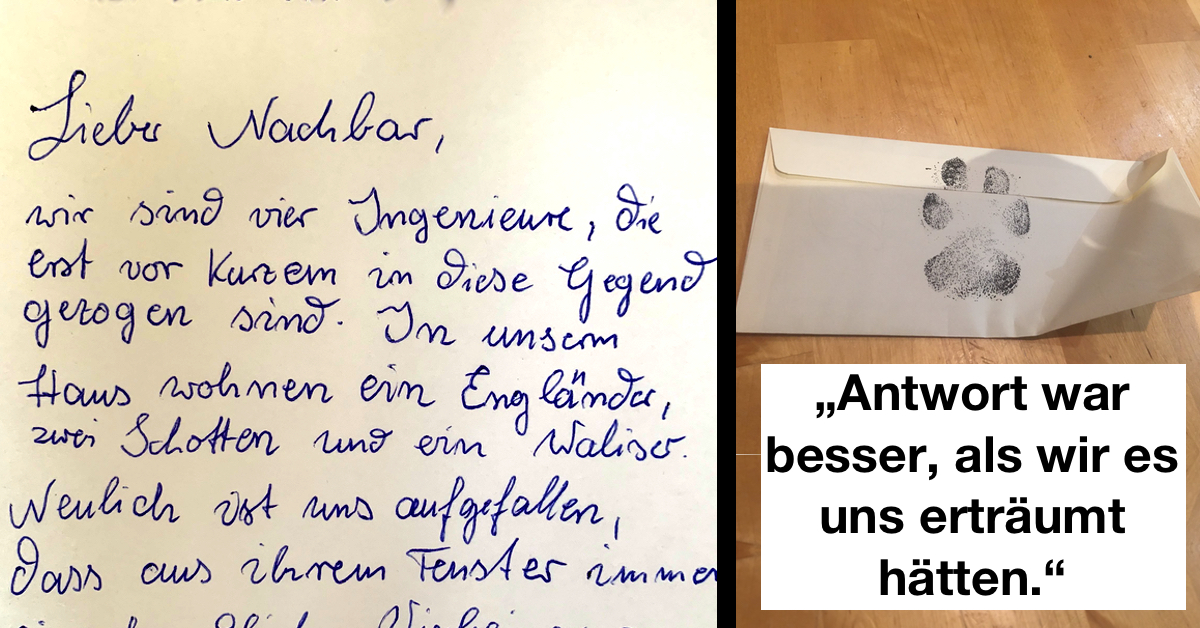 Lieber Nachbar,
wir sind vier Ingenieure, die
erst vor Kurzem in diese Gegend
gezogen sind. In unserm
Haus wohnen ein Engländer,
zwei Schotten und ein Waliser.
Neulich ist uns aufgefallen,
dass aus ihrem Fenster immer
„Antwort war
besser, als wir es
uns erträumt
hätten.“